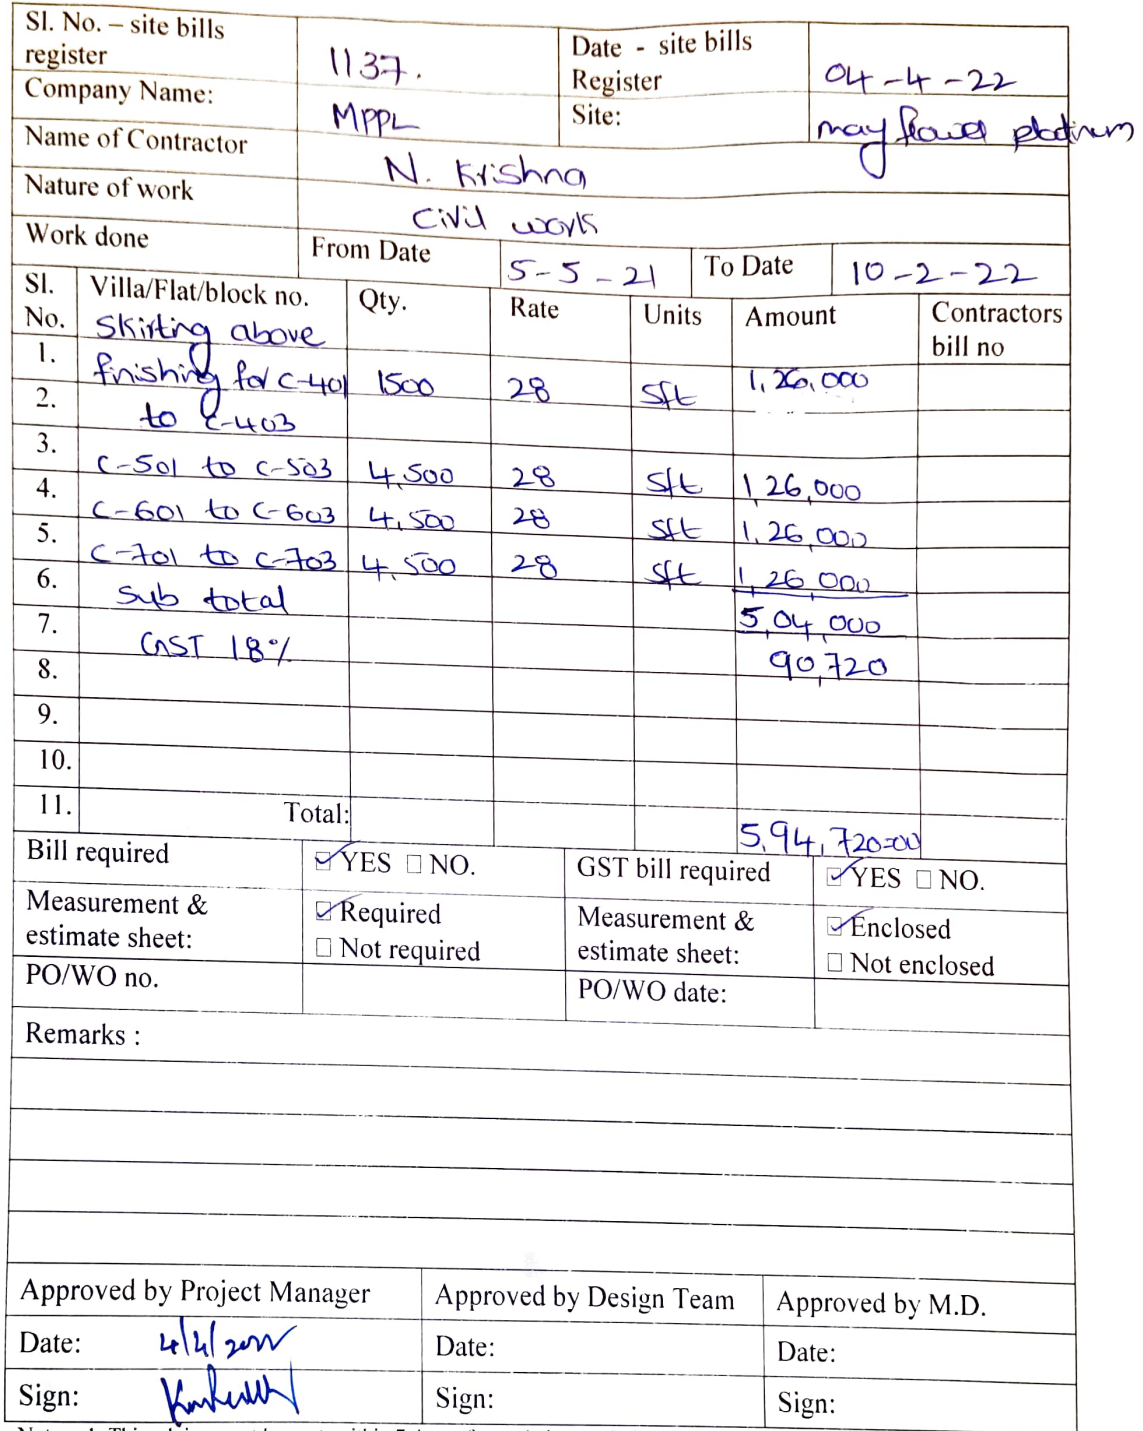 Sl. No. – site bills register 1137. Date - site bills Register 04-4-22
Company Name: MPPL Site: mayflower platinum
Name of Contractor N. Krishna
Nature of work Civil work
Work done From Date 5-5-21 To Date 10-2-22
Sl. No. Villa/Flat/block no. Qty. Rate Units Amount Contractors bill no
Skirting above
1. finishing for C-401 1500 28 sft 1,26,000
2. to C-403
3. C-501 to C-503 4,500 28 sft 1,26,000
4. C-601 to C-603 4,500 28 sft 1,26,000
5. C-701 to C-703 4,500 28 sft 1,26,000
6. Sub total 5,04,000
7. GST 18% 90,720
8.
9.
10.
11. Total: 5,94,720=00
Bill required YES NO. GST bill required YES NO.
Measurement & estimate sheet: Required Not required Measurement & estimate sheet: Enclosed Not enclosed
PO/WO no. PO/WO date:
Remarks :
Approved by Project Manager Approved by Design Team Approved by M.D.
Date: 4/4/2022 Date: Date:
Sign: Sign: Sign: